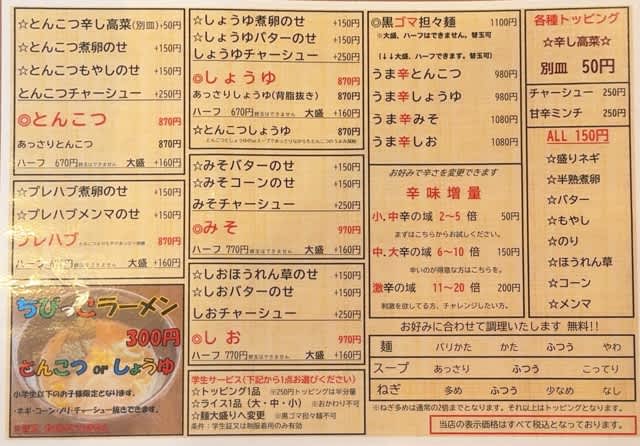 ☆とんこつ辛し高菜(別皿)+50円
☆とんこつ煮卵のせ +150円
☆とんこつもやしのせ +150円
とんこつチャーシュー +250円
◎とんこつ 870円
あっさりとんこつ 870円
ハーフ 670円 大盛 +160円
☆プレハブ煮卵のせ +150円
☆プレハブメンマのせ +150円
プレハブ 870円
ハーフ 大盛 +160円
ちびっこラーメン
300円
とんこつ or しょうゆ
小学生以下のお子様限定となります。
☆しょうゆ煮卵のせ +150円
☆しょうゆバターのせ +150円
しょうゆチャーシュー +250円
◎しょうゆ 870円
あっさりしょうゆ(背脂抜き) 870円
ハーフ 670円 替玉はできません 大盛 +160円
☆とんこつしょうゆ 870円
☆みそバターのせ +150円
☆みそコーンのせ +150円
みそチャーシュー +250円
◎みそ 970円
ハーフ 770円 替玉はできません 大盛 +160円
☆しおほうれん草のせ +150円
☆しおバターのせ +150円
しおチャーシュー +250円
◎しお 870円
ハーフ 770円 替玉はできません 大盛 +160円
学生サービス(下記から1点お選びください)
☆トッピング1品 ※250円トッピングは半分量
☆ライス1品(大・中・小) ※おかわり不可
☆麺大盛りへ変更 ※黒ゴマ担々麺不可
条件:学生証又は制服着用のみ有効
◎黒ゴマ担々麺 1100円
※大盛、ハーフはできません。替玉可
(↓↓大盛、ハーフできます。替玉可)
うま辛とんこつ 980円
うま辛しょうゆ 980円
うま辛みそ 1080円
うま辛しお 1080円
お好みで辛さを変更できます
辛味増量
小.中辛の域 2~5 倍 50円
まずはこちらからお試しください。
中.大辛の域 6~10 倍 150円
辛いのが得意な方はこちらを。
激辛の域 11~20 倍 200円
刺激を欲してる方、チャレンジしたい方。
各種トッピング
☆辛し高菜☆
別皿 50円
チャーシュー 250円
甘辛ミンチ 250円
ALL 150円
☆盛りネギ
☆半熟煮卵
☆バター
☆もやし
☆のり
☆ほうれん草
☆コーン
☆メンマ
お好みに合わせて調理いたします 無料!!
麺 バリかた かた ふつう やわ
スープ あっさり ふつう こってり
ねぎ 多め ふつう 少なめ なし
※ねぎ多めは通常の2倍までとなります。それ以上はトッピングとなります。
当店の表示価格はすべて税込となっております。